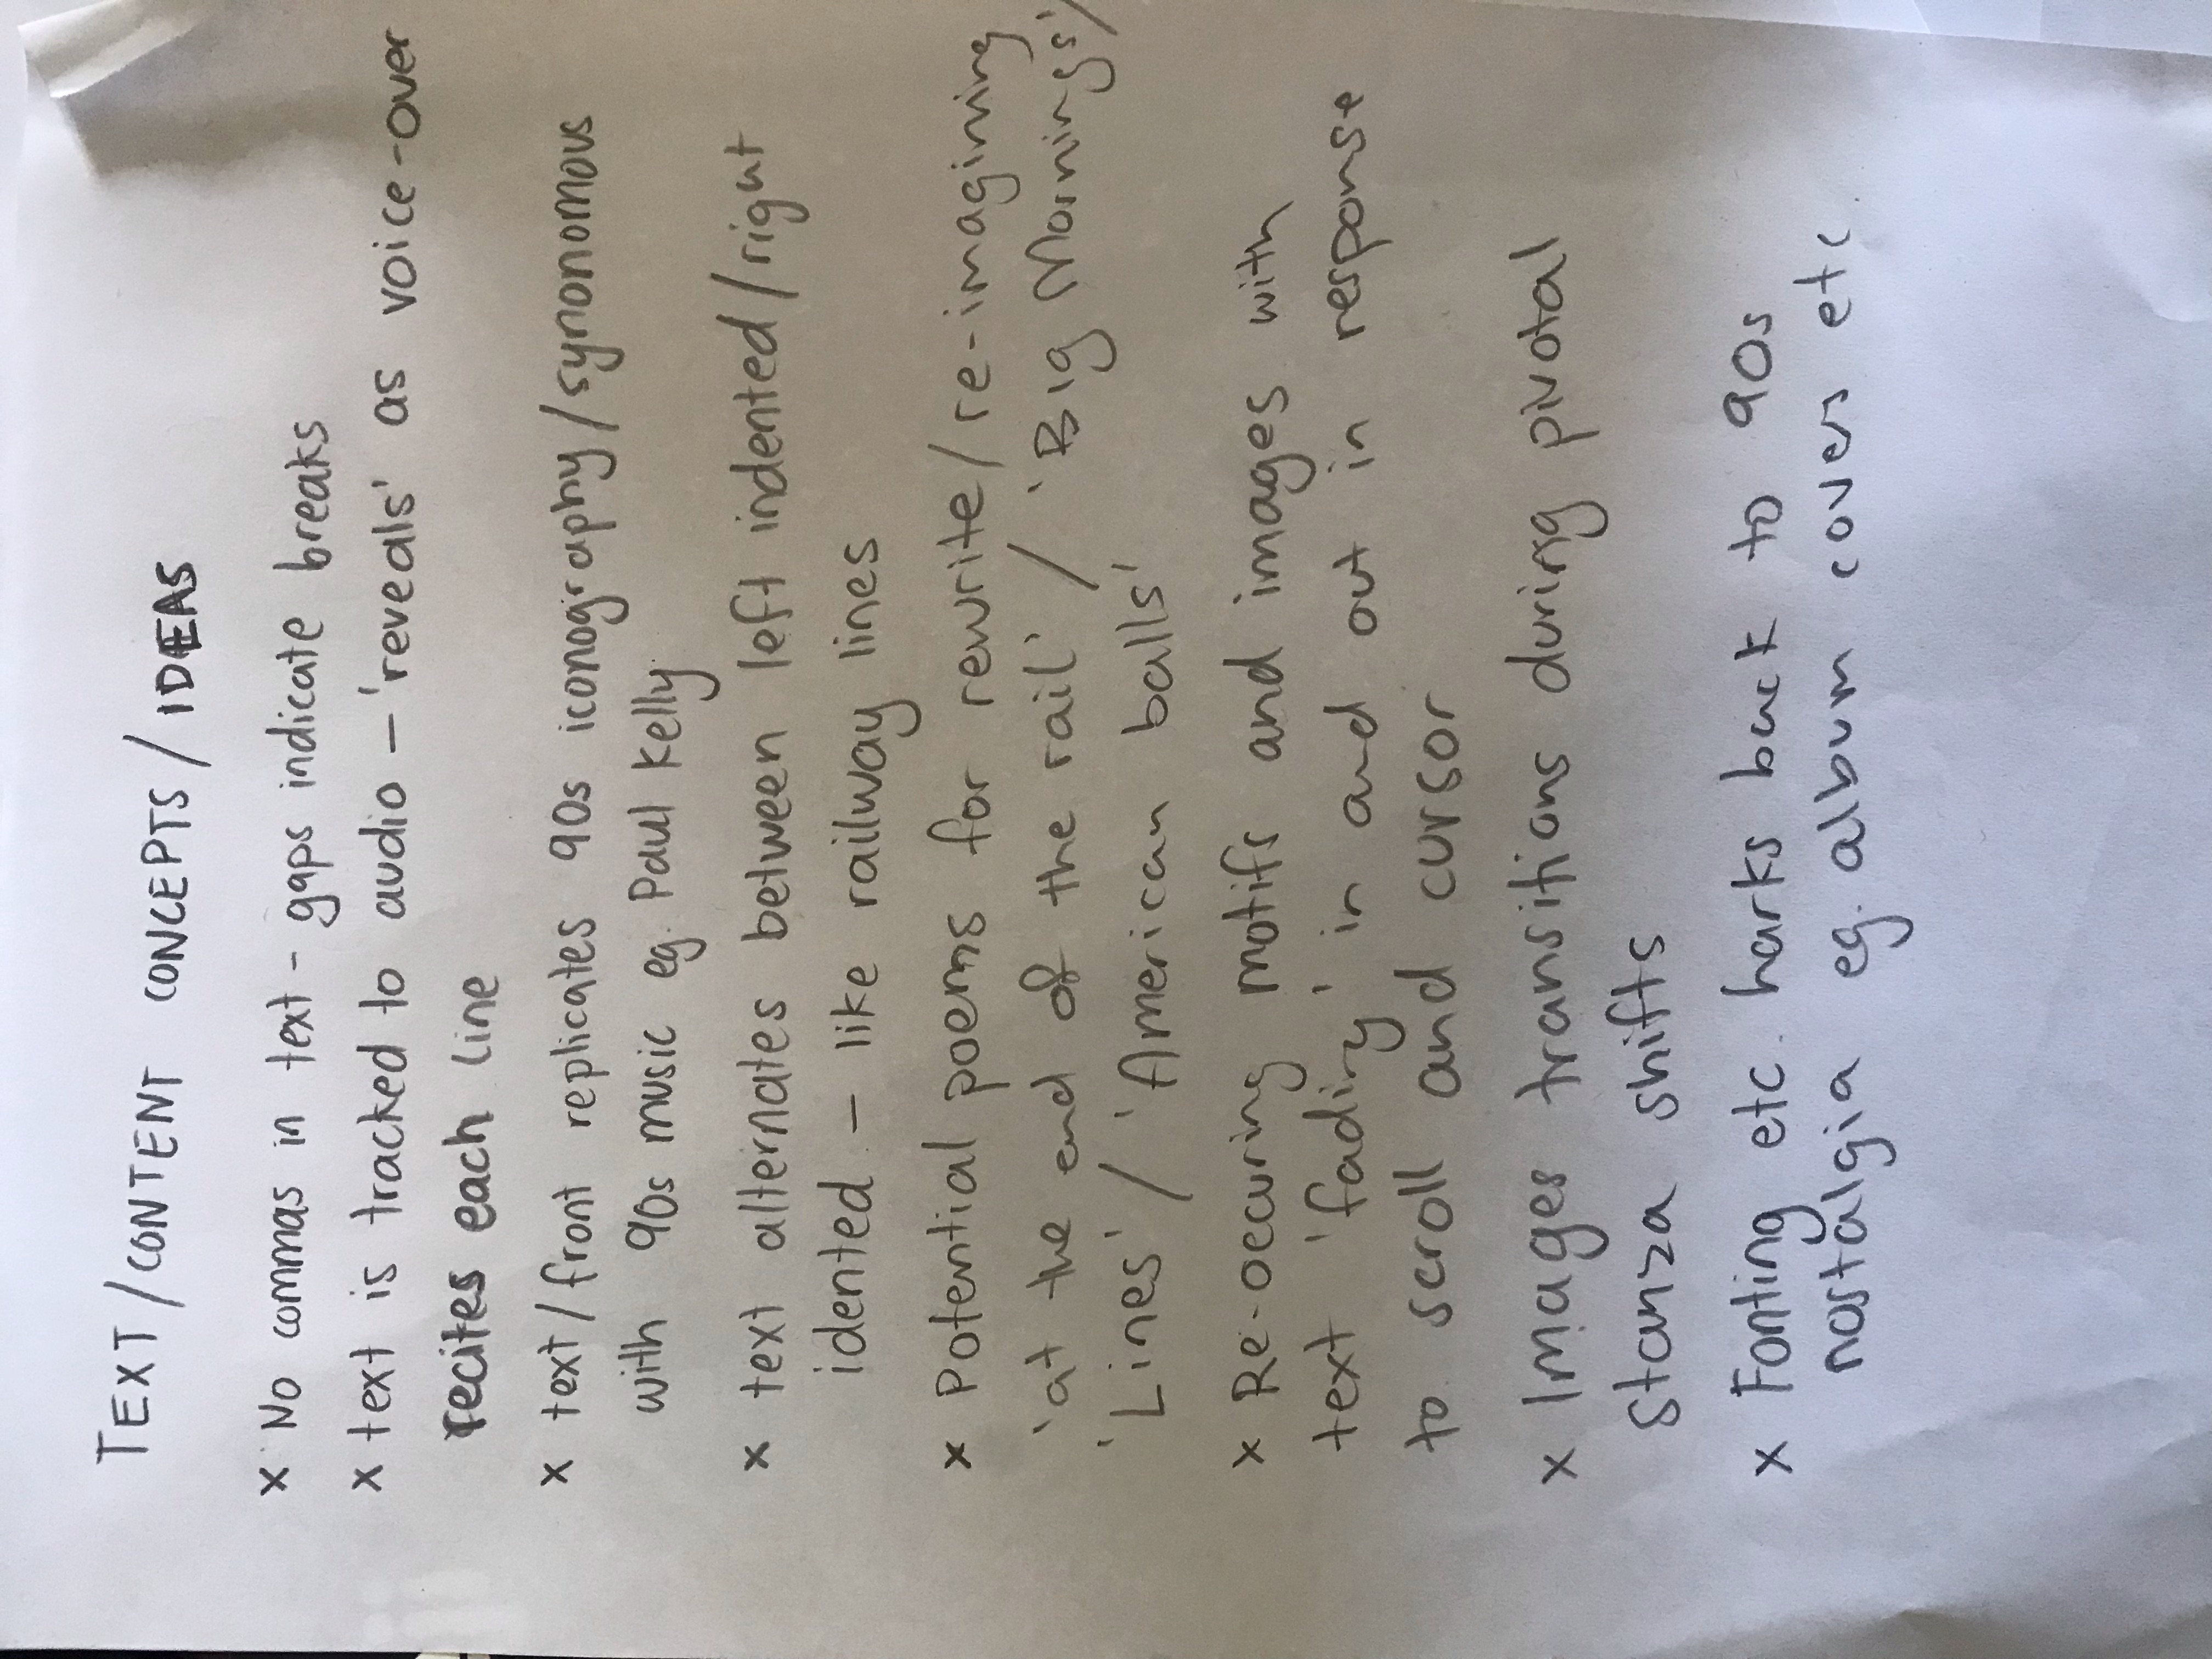 TEXT/CONTENT CONCEPTS/IDEAS
x No commas in text - gaps indicate breaks
x text is tracked to audio – 'reveals' as voice-over
recites each line
x text/front replicates 90s iconography/synonomous
with 90s music eg. Paul Kelly
x text alternates between left indented/right
idented – like railway lines
x Potential poems for rewrite/re-imagining
'at the end of the rail' / 'Big Mornings'/
'Lines' / 'American balls'
x Re-occuring motifs and images with
text 'fading' in and out in response
to scroll and cursor
x Images transitions during pivotal
stanza shifts
x Fonting etc. harks back to 90s
nostalgia eg. album covers etc.